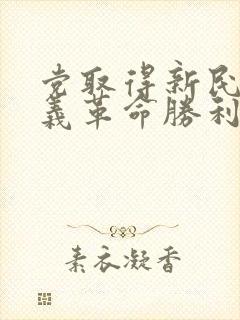 党取得新民
義革命勝利
素衣凝香